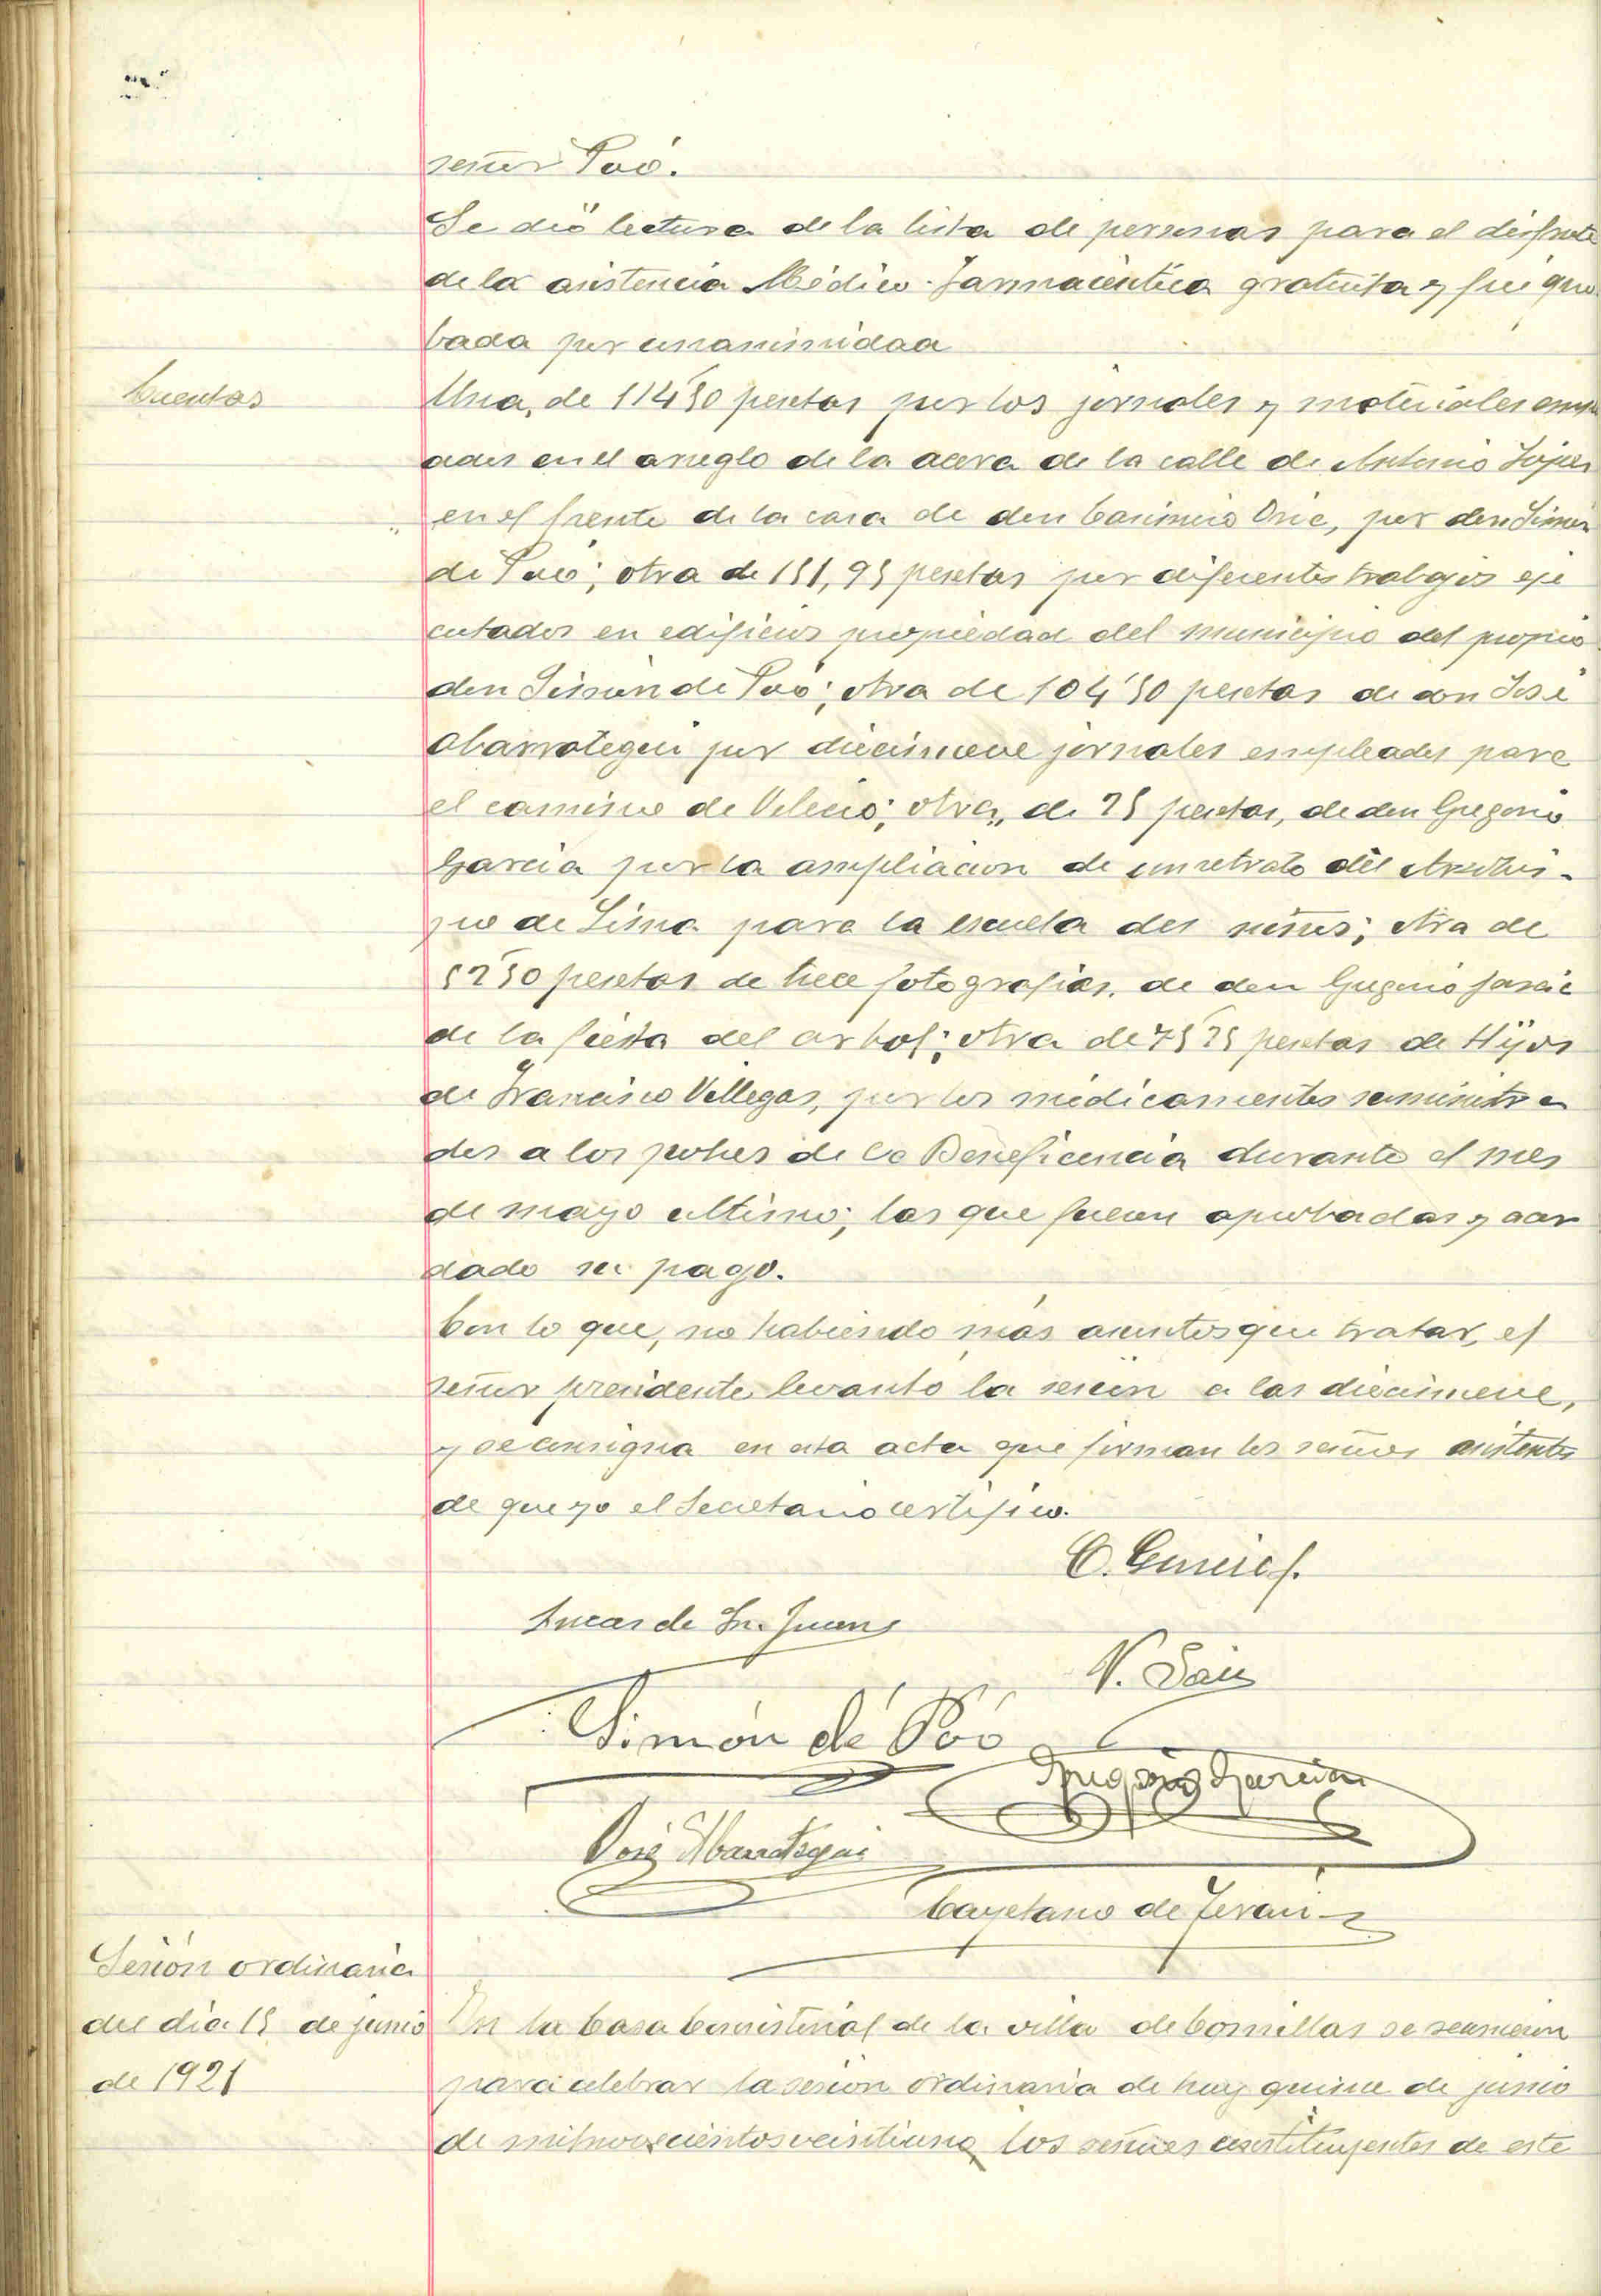 señor Poó.
Se dió lectura de la lista de personas para el disfrute
de la asistencia Médico-Farmacéutica gratuita y fué apro
bada por unanimidad
Cuentas
Una, de 114'50 pesetas por los jornales y materiales emple
ados en el arreglo de la acera de la calle de Antonio López
en el frente de la casa de don Casimiro Orie, por don Simón
de Poó; otra de 151,95 pesetas por diferentes trabajos eje
cutados en edificios propiedad del municipio del propio
don Simón de Poó; otra de 104'50 pesetas de don José
Abarrategui por diecinueve jornales empleados para
el camino de Velecio; otra, de 25 pesetas, de don Gregorio
García por la ampliación de un retrato del Arzobis-
po de Lima para la escuela de niños; otra de
52'50 pesetas de trece fotografías, de don Gregorio García
de la fiesta del arbol; otra de 75'25 pesetas de Hijos
de Francisco Villegas, por los medicamentos suministra
dos a los pobres de la Beneficencia durante el mes
de mayo ultimo; las que fueron aprobadas y acor
dado su pago.
Con lo que, no habiendo más asuntos que tratar, el
señor presidente levantó la sesión a las diecinueve,
y se consigna en esta acta que firman los señores asistentes
de que yo el Secretario certifico.
Lucas de Sn. Juan
N. Saiz
Simón de Poó
Gregorio García
José Abarrategui
Cayetano de Terán
Sesión ordinaria
del día 15 de junio
de 1921
En la Casa Consistorial de la villa de Comillas se reunieron
para celebrar la sesión ordinaria de hoy quince de junio
de mil novecientos veintiuno los señores constituyentes de este